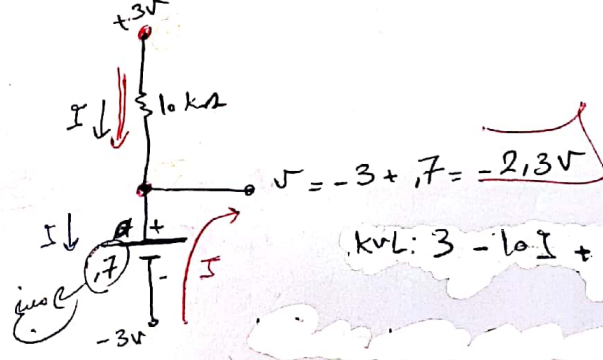 +3v
I 10 kΩ
v = -3 + ,7 = -2,3v
I + 
,7 - I
KVL: 3 - 10I +
-3v